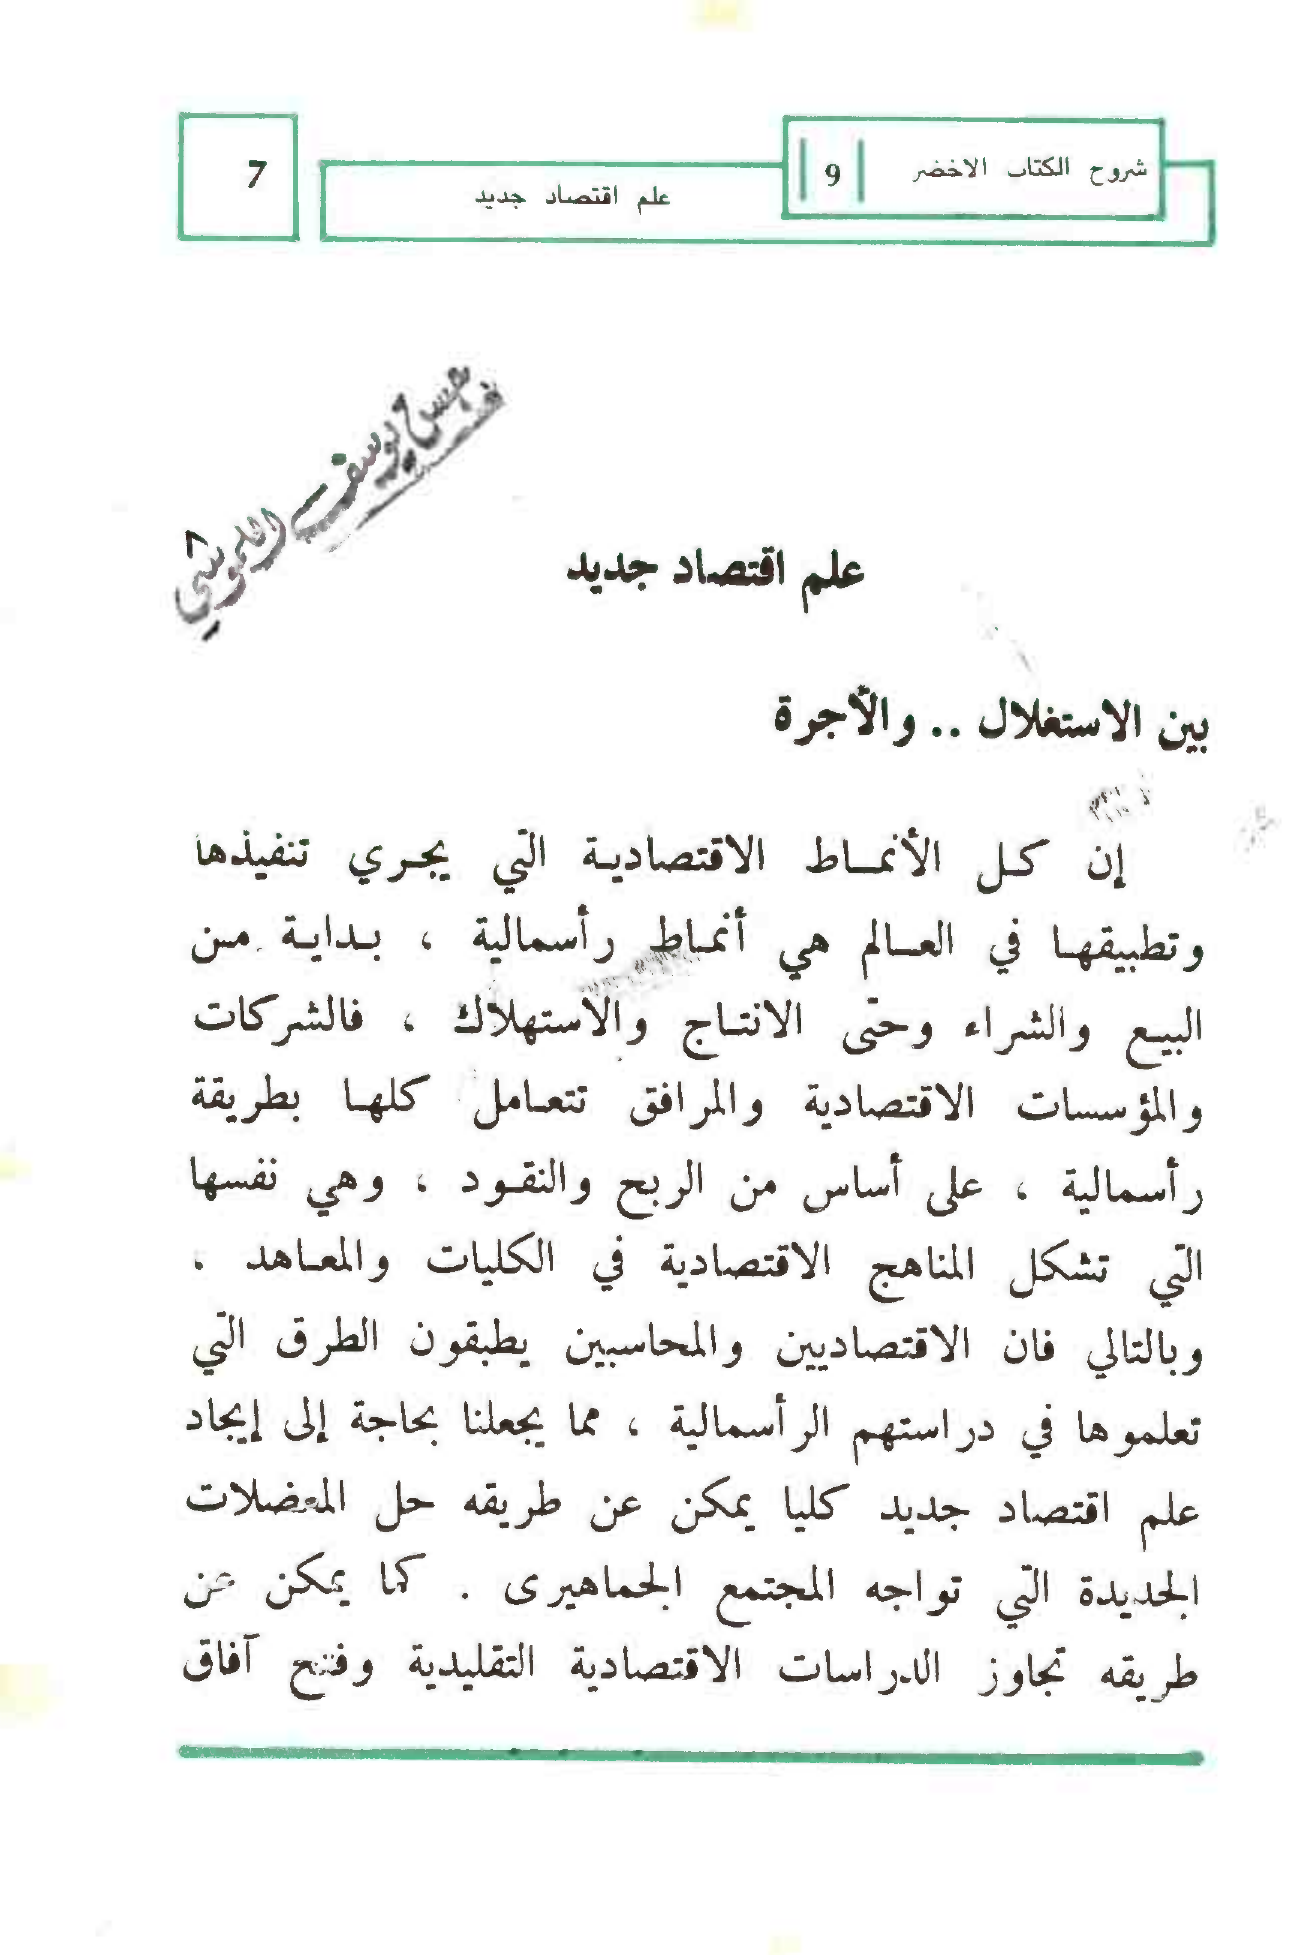 شروح الكتاب الاخضر
9
علم اقتصاد جديد
7
يوسف
علم اقتصاد جديد
بين الاستغلال .. والأجرة
إن كل الأنماط الاقتصادية التي يجري تنفيذها
وتطبيقها في العالم هي أنماط رأسمالية ، بداية من
البيع والشراء وحتى الانتاج والاستهلاك ، فالشركات
والمؤسسات الاقتصادية والمرافق تتعامل كلها بطريقة
رأسمالية ، على أساس من الربح والنقود ، وهي نفسها
التي تشكل المناهج الاقتصادية في الكليات والمعاهد .
وبالتالي فان الاقتصاديين والمحاسبين يطبقون الطرق التي
تعلموها في دراستهم الرأسمالية ، مما يجعلنا بحاجة إلى إيجاد
علم اقتصاد جديد كليا يمكن عن طريقه حل المعضلات
الجديدة التي تواجه المجتمع الجماهيرى . كما يمكن عن
طريقه تجاوز الدراسات الاقتصادية التقليدية وفتح آفاق